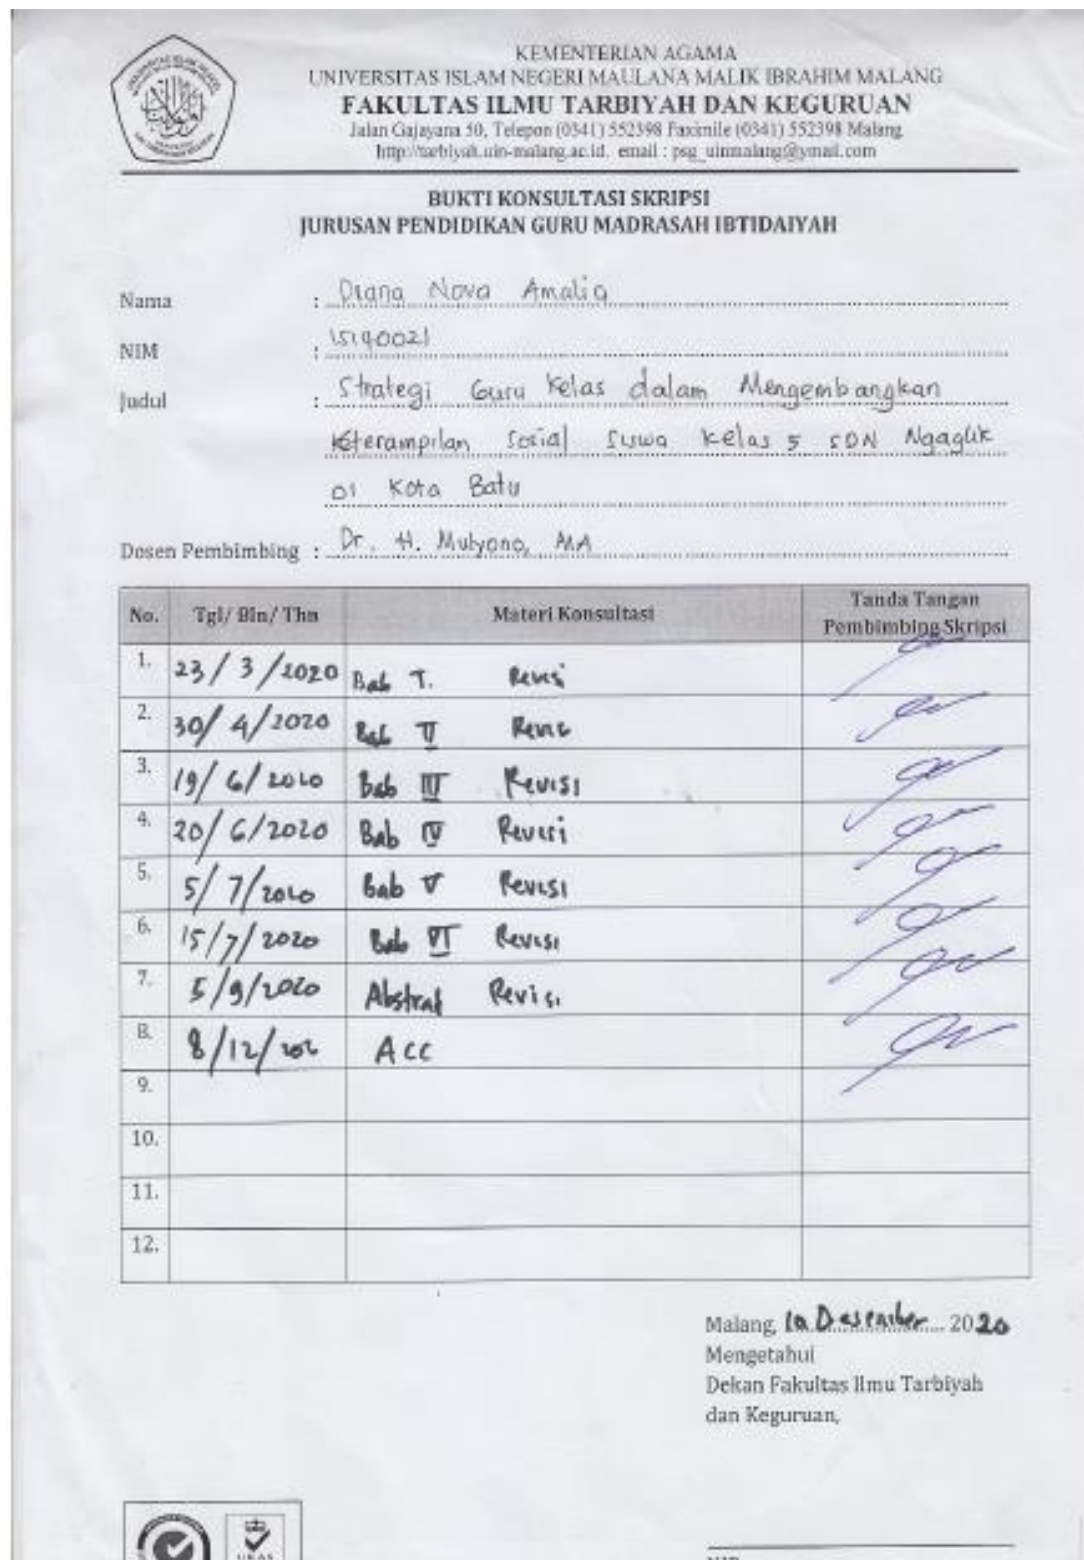 KEMENTERIAN AGAMA
UNIVERSITAS ISLAM NEGERI MAULANA MALIK IBRAHIM MALANG
FAKULTAS ILMU TARBIYAH DAN KEGURUAN
Jalan Gajayana 50, Telepon (0341) 552398 Faximile (0341) 552398 Malang
http://tarbiyah.uin-malang.ac.id. email : psg_uinmalang@ymail.com
BUKTI KONSULTASI SKRIPSI
JURUSAN PENDIDIKAN GURU MADRASAH IBTIDAIYAH
Nama : Diana Nova Amalia
NIM : 15140021
Judul : Strategi Guru Kelas dalam Mengembangkan
Keterampilan Sosial Siswa Kelas 5 SDN Ngaglik
01 Kota Batu
Dosen Pembimbing : Dr. H. Mulyono, MA
No. Tgl/ Bln/ Thn Materi Konsultasi Tanda Tangan Pembimbing Skripsi
1. 23/3/2020 Bab I. Revisi
2. 30/4/2020 Bab II Revisi
3. 19/6/2020 Bab III Revisi
4. 20/6/2020 Bab IV Revisi
5. 5/7/2020 Bab V Revisi
6. 15/7/2020 Bab VI Revisi
7. 5/9/2020 Abstrak Revisi
8. 8/12/202 Acc
9.
10.
11.
12.
Malang, 10 Desember 2020
Mengetahui
Dekan Fakultas Ilmu Tarbiyah
dan Keguruan,
UKAS